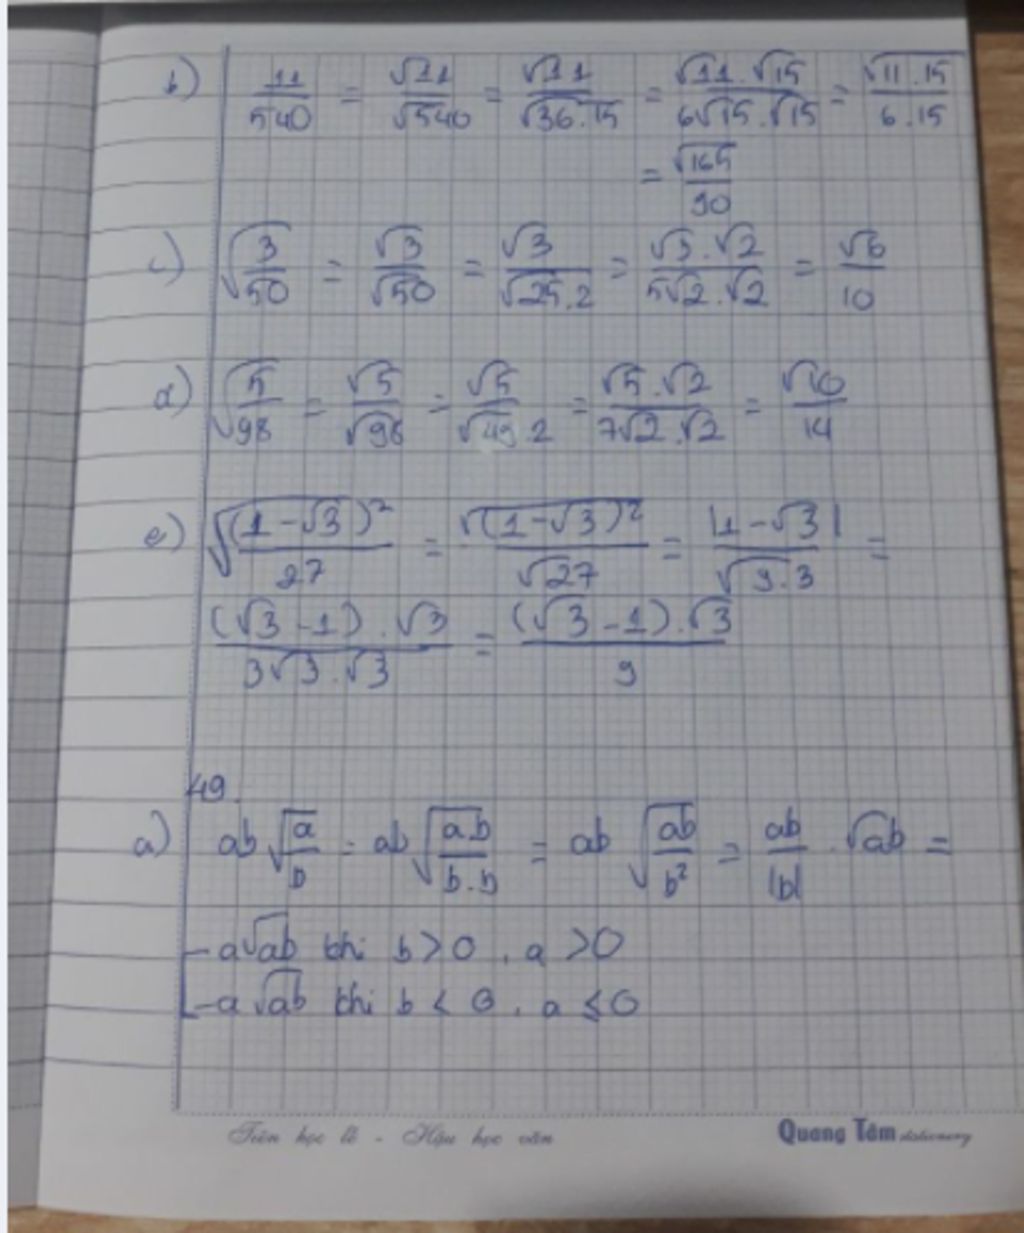 b) 11/540 = √11/√540 = √11/√36.15 = √11.√15/6√15.√15 = √11.15/6.15
= √165/90
c) √3/50 = √3/√50 = √3/√25.2 = √3.√2/5√2.√2 = √6/10
d) √5/98 = √5/√98 = √5/√49.2 = √5.√2/7√2.√2 = √10/14
e) √(1-√3)²/27 = √(1-√3)²/√27 = |1-√3|/√9.3 =
(√3-1).√3/3√3.√3 = (√3-1).√3/9
49.
a) ab√a/b = ab√ab/b.b = ab√ab/b² = ab/|b| . √ab =
- a√ab khi b > 0 , a > 0
- a√ab khi b < 0 , a ≤ 0
Tiên học lễ - Hậu học văn Quang Tâm stationery